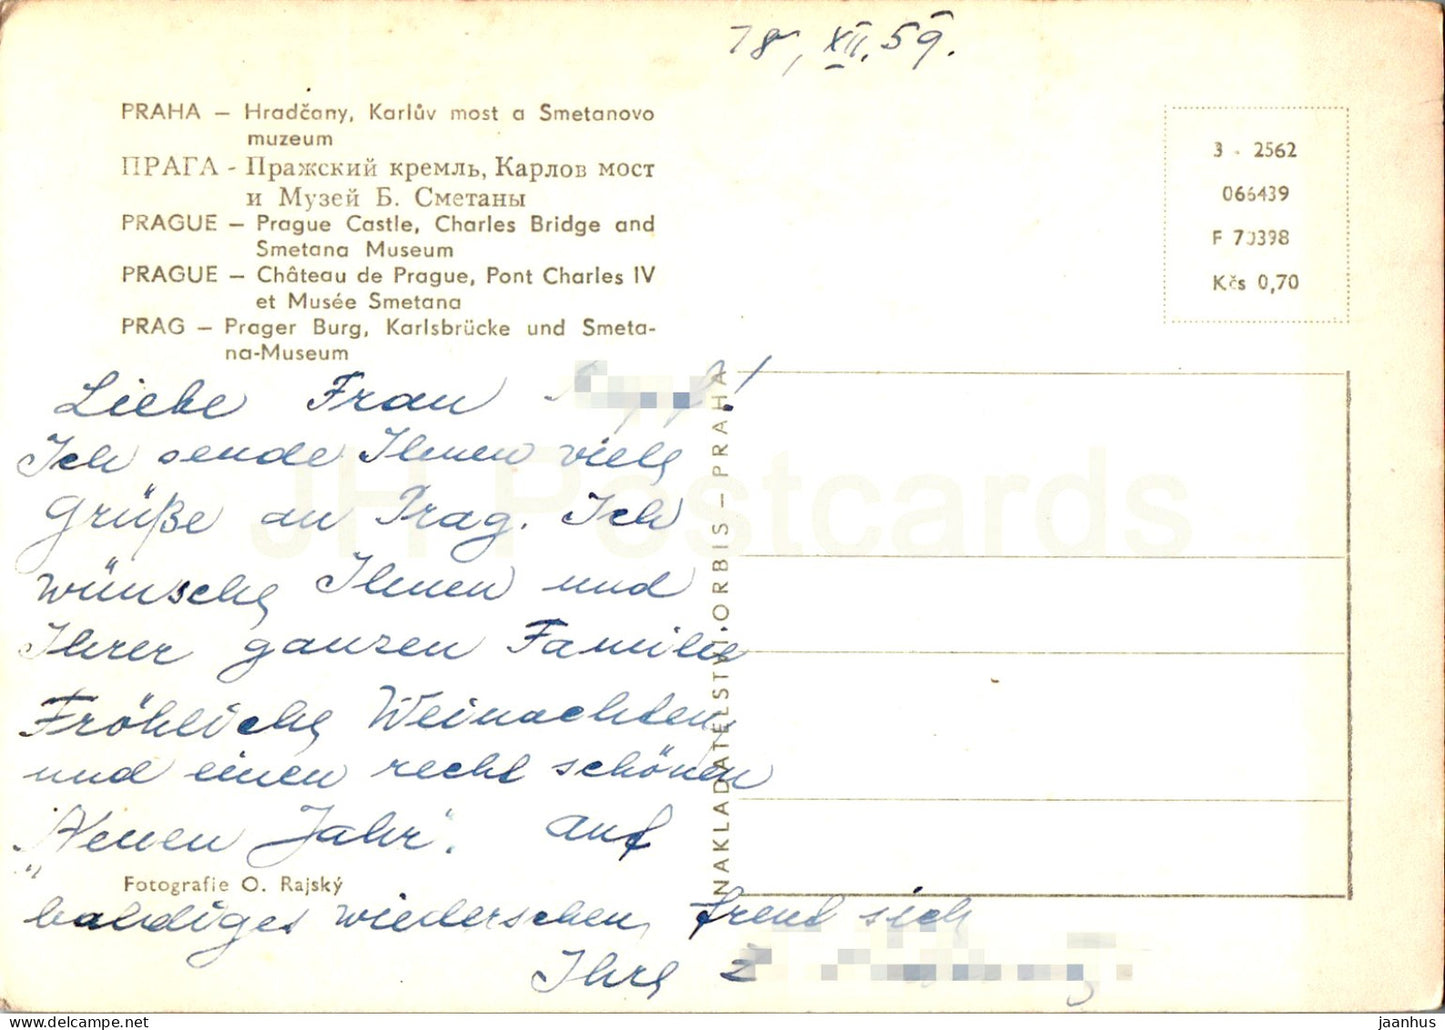 18, XII. 59.
PRAHA – Hradčany, Karlův most a Smetanovo
muzeum
ПРАГА - Пражский кремль, Карлов мост
и Музей Б. Сметаны
PRAGUE – Prague Castle, Charles Bridge and
Smetana Museum
PRAGUE – Château de Prague, Pont Charles IV
et Musée Smetana
PRAG – Prager Burg, Karlsbrücke und Smeta-
na-Museum
3 - 2562
066439
F 70398
Kčs 0,70
Liebe Frau !
Ich sende Ihnen viele
Grüße au Prag. Ich
wünsche Ihnen und
Ihrer ganzen Familie
Fröhliche Weinachten,
und einen recht schönen
"Neuen Jahr". Auf
Fotografie O. Rajský
baldiges wiedersehen, freut sich
Ihre
NAKLADATELSTVÍ ORBIS – PRAHA
JH Postcards
© delcampe.net
jaanhus